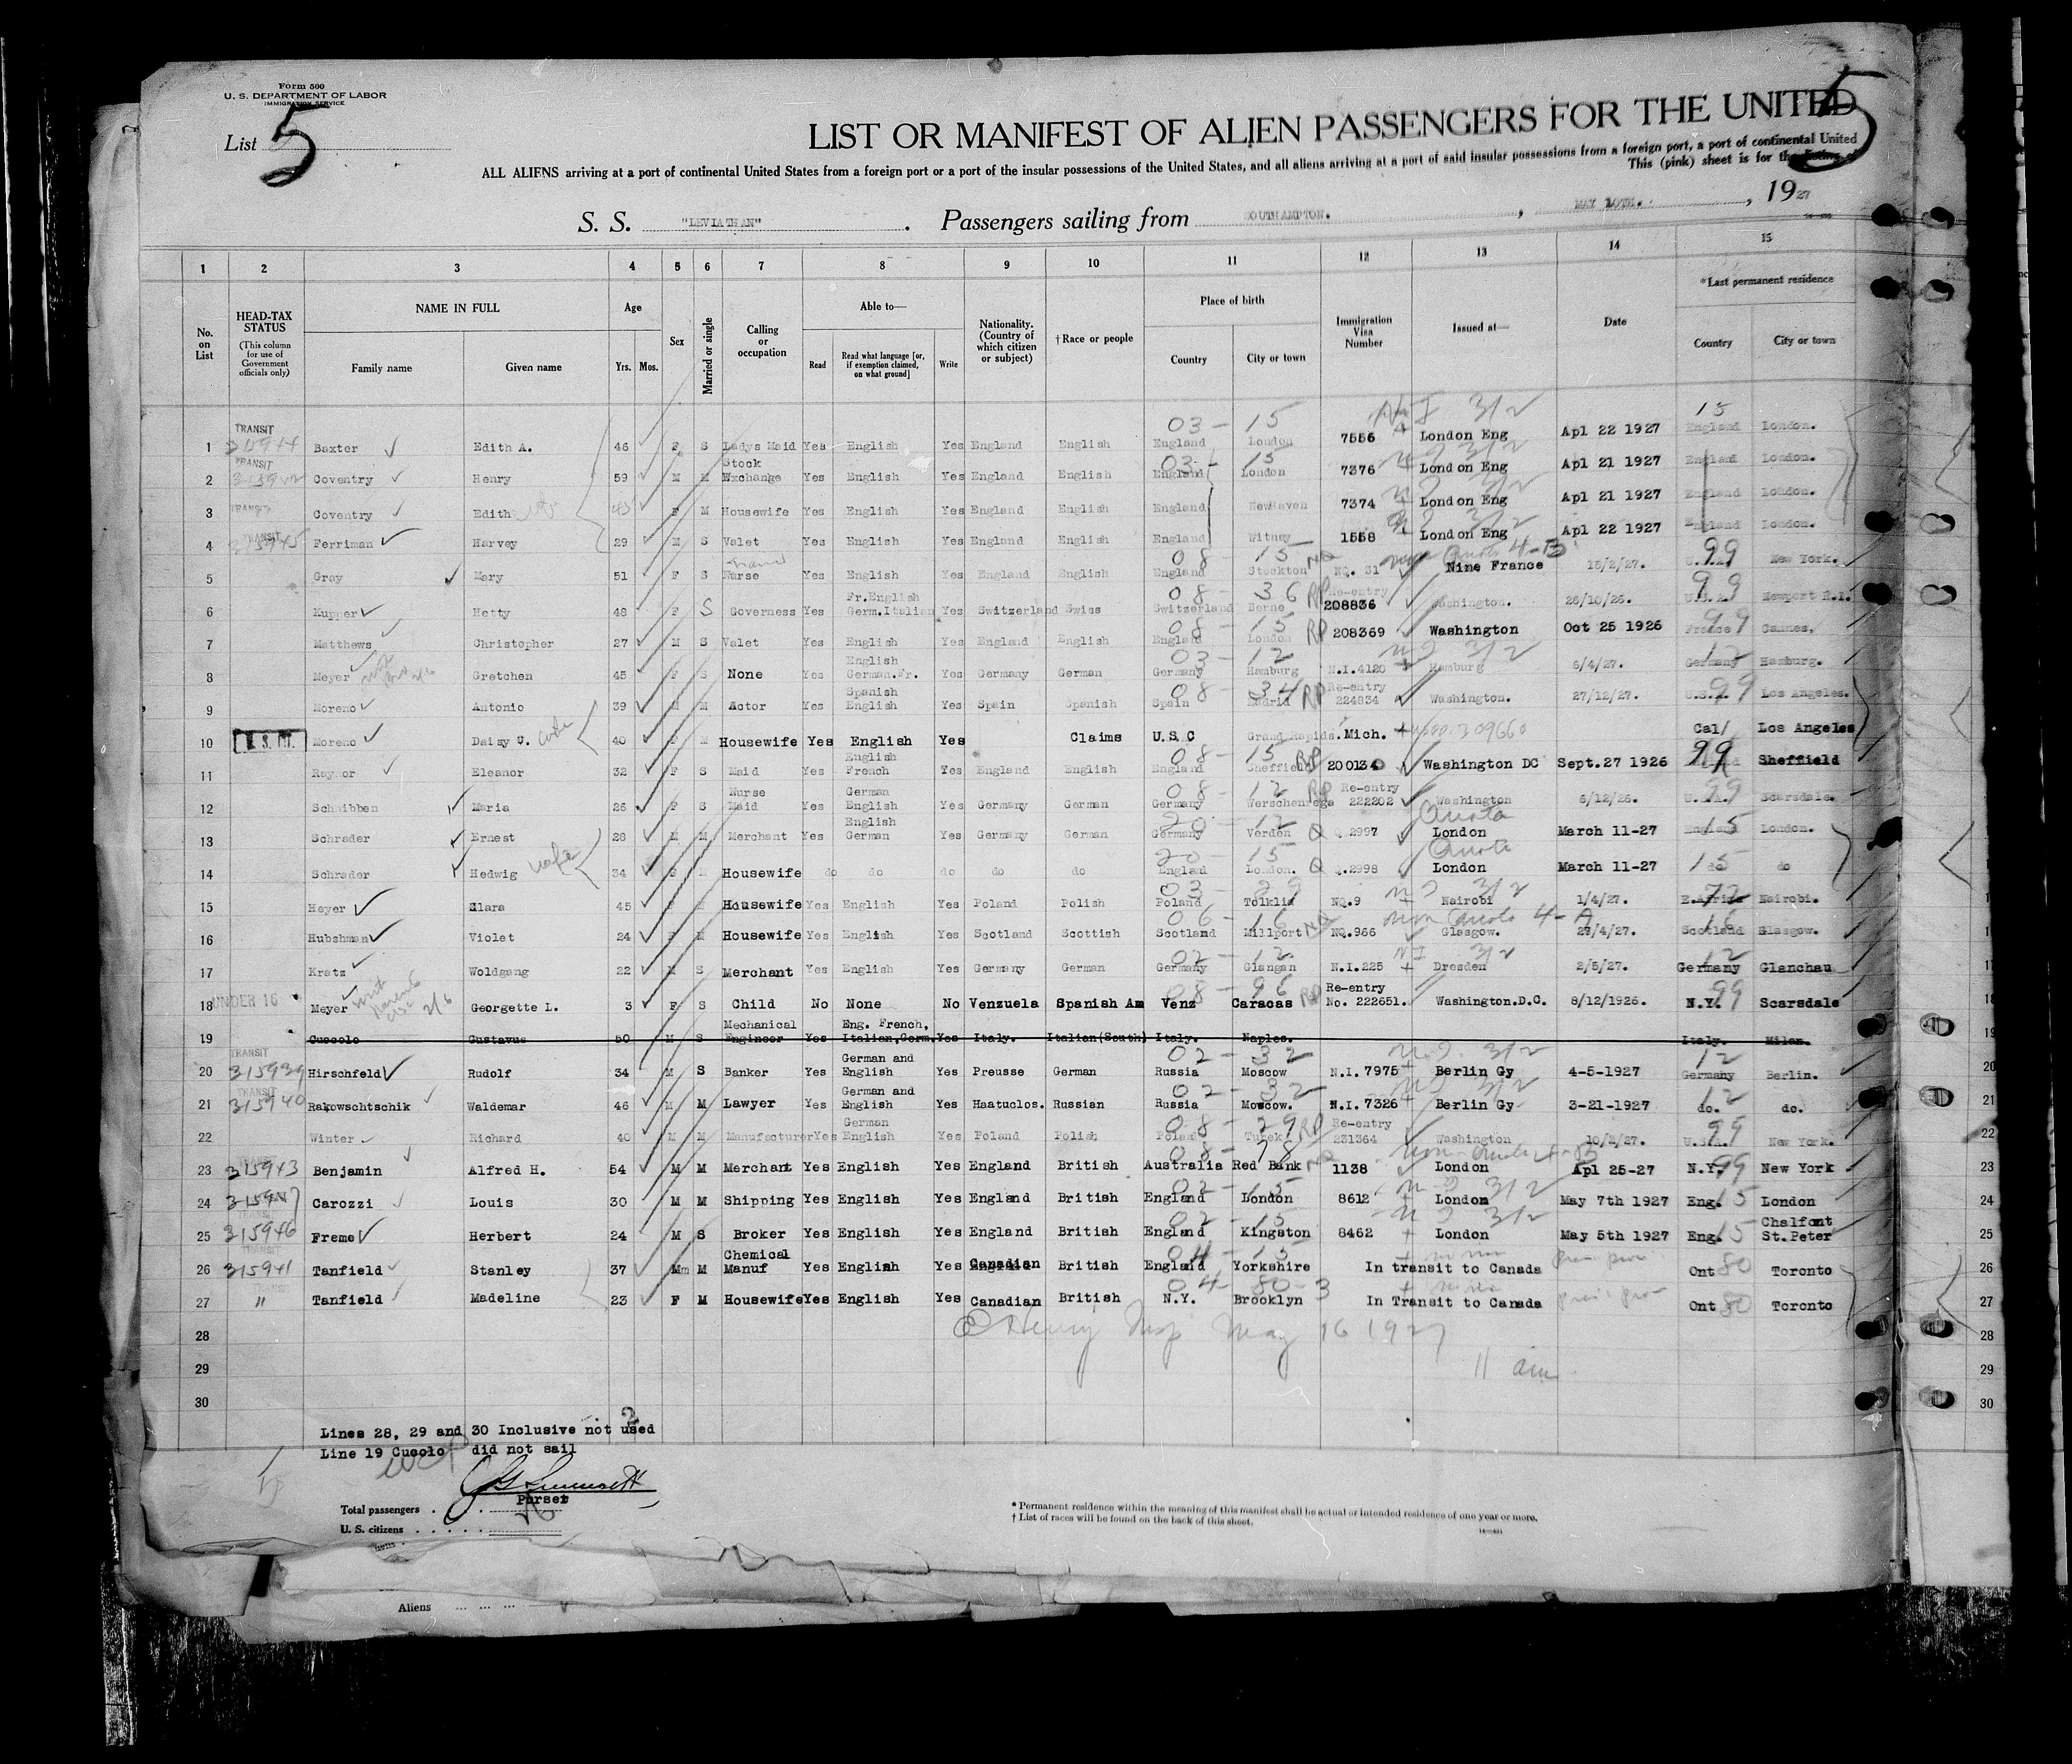 Form 500
U. S. DEPARTMENT OF LABOR
IMMIGRATION SERVICE
List 5
5
LIST OR MANIFEST OF ALIEN PASSENGERS FOR THE UNITED
ALL ALIENS arriving at a port of continental United States from a foreign port or a port of the insular possessions of the United States, and all aliens arriving at a port of said insular possessions from a foreign port, a port of continental United
This (pink) sheet is for the listing of
S. S. "LEVIATHAN". Passengers sailing from SOUTHAMPTON. , MAY 10TH. , 1927
1 2 3 4 5 6 7 8 9 10 11 12 13 14 15
No. on List
HEAD-TAX STATUS (This column for use of Government officials only)
NAME IN FULL Family name Given name
Age Yrs. Mos.
Sex
Married or single
Calling or occupation
Able to— Read Read what language [or, if exemption claimed, on what ground] Write
Nationality. (Country of which citizen or subject)
† Race or people
Place of birth Country City or town
Immigration Visa Number
Issued at—
Date
*Last permanent residence Country City or town
03 - 15 3/2 15
1 TRANSIT 315944 Baxter Edith A. 46 F S Ladys Maid Yes English Yes England English England London 7556 London Eng Apl 22 1927 England London.
03 - 15 3/2
2 TRANSIT Coventry Henry 59 M M Stock Exchange Yes English Yes England English England London 7376 London Eng Apl 21 1927 England London.
3 TRANSIT Coventry Edith wife 45 F M Housewife Yes English Yes England English England NewHaven 7374 London Eng Apl 21 1927 England London.
4 TRANSIT 315945 Ferriman Harvey 29 M S Valet Yes English Yes England English England Witney 1558 London Eng Apl 22 1927 England London.
08 - 15 NQ Non Quota 4-B 99
5 Gray Mary 51 F S Nurse Yes English Yes England English England Stockton NQ. 31 Nine France 15/2/27. U.S.A. New York.
08 - 36 RP 99
6 Kupper Hetty 48 F S Governess Yes Fr.English Germ.Italian Yes Switzerland Swiss Switzerland Berne Re-entry 208836 Washington. 26/10/26. U.S.A. Newport R.I.
08 - 15 RP 99
7 Matthews Christopher 27 M S Valet Yes English Yes England English England London 208369 Washington Oct 25 1926 France Cannes.
03 - 12 3/2 12
8 Meyer Gretchen 45 F S None Yes English German.Fr. Yes Germany German Germany Hamburg N.I.4120 Hamburg 6/4/27. Germany Hamburg.
08 - 34 RP 99
9 Moreno Antonio 39 M M Actor Yes Spanish English Yes Spain Spanish Spain Madrid Re-entry 224834 Washington. 27/12/27. U.S.A. Los Angeles.
10 Moreno Daisy C. wife 40 F M Housewife Yes English Yes Claims U.S.C Grand Rapids. Mich. 309660 Cal/ Los Angeles
08 - 15 RP 99
11 Raynor Eleanor 32 F S Maid Yes English French Yes England English England Sheffield 200130 Washington DC Sept.27 1926 Sheffield
08 - 12 RP 99
12 Schwibben Maria 26 F S Nurse Maid Yes German English Yes Germany German Germany Re-entry 222202 Washington 6/12/26. U.S.A. Scarsdale.
20 - 12 Quota 15
13 Schrader Ernest 28 M M Merchant Yes English German Yes Germany German Germany Verden Q .2997 London March 11-27 England London.
20 - 15 Quota 15
14 Schrader Hedwig wife 34 F M Housewife do do do do do England London. Q .2998 London March 11-27 do do
03 - 29 3/2 72
15 Heyer Clara 45 F M Housewife Yes English Yes Poland Polish Poland Tolklia NQ.9 Nairobi 1/4/27. E.Africa Nairobi.
06 - 16 NQ Non Quota 4-A 16
16 Hubshman Violet 24 F M Housewife Yes English Yes Scotland Scottish Scotland Millport NQ.966 Glasgow. 27/4/27. Scotland Glasgow.
02 - 12 NI 3/2 12
17 Kratz Woldgang 22 M S Merchant Yes English Yes Germany German Germany N.I.225 Dresden 2/5/27. Germany Glanchau
08 - 96 RP 99
18 UNDER 16 Meyer Georgette L. 3 F S Child No None No Venzuela Spanish Am Venz Caracas Re-entry No. 222651. Washington.D.C. 8/12/1926. N.Y. Scarsdale
19 Cuscolo Gustavus 50 M S Mechanical Engineer Yes Eng. French, Italian,Germ. Yes Italy. Italian(South) Italy. Naples. Italy. Milan.
02 - 32 N.I. 3/2 12
20 TRANSIT 315939 Hirschfeld Rudolf 34 M S Banker Yes German and English Yes Preusse German Russia Moscow N.I. 7975 Berlin Gy 4-5-1927 Germany Berlin.
02 - 32 NI 3/2 12
21 TRANSIT 315940 Rakowschtschik Waldemar 46 M M Lawyer Yes German and English Yes Haatuclos. Russian Russia Moscow. N.I. 7326 Berlin Gy 3-21-1927 do. do.
08 - 29 RP 99
22 Winter Richard 40 M M Manufacturer Yes German English Yes Poland Polish Poland Turek Re-entry 231364 Washington 10/2/27. U.S.A. New York.
08 - 78 NQ Non-Quota 4-B 99
23 315943 Benjamin Alfred H. 54 M M Merchant Yes English Yes England British Australia Red Bank 1138 London Apl 25-27 N.Y. New York
02 - 15 NI 3/2 15
24 315947 Carozzi Louis 30 M M Shipping Yes English Yes England British England London 8612 London May 7th 1927 Eng. London
02 - 15 NI 3/2 15
25 315946 Freme Herbert 24 M S Broker Yes English Yes England British England Kingston 8462 London May 5th 1927 Eng. Chalfont St.Peter
04 - 15
26 TRANSIT 315941 Tanfield Stanley 37 M M Chemical Manuf Yes English Yes Canadian British England Yorkshire In transit to Canada Ont 80 Toronto
04 - 80 - 3
27 " Tanfield Madeline 23 F M Housewife Yes English Yes Canadian British N.Y. Brooklyn In Transit to Canada Ont 80 Toronto
28 Henry Insp May 16 1927
29 11 am
30
Lines 28, 29 and 30 Inclusive not used
Line 19 Cuscolo did not sail
Purser
Total passengers
U. S. citizens
Aliens
* Permanent residence within the meaning of this manifest shall be actual or intended residence of one year or more.
† List of races will be found on the back of this sheet.